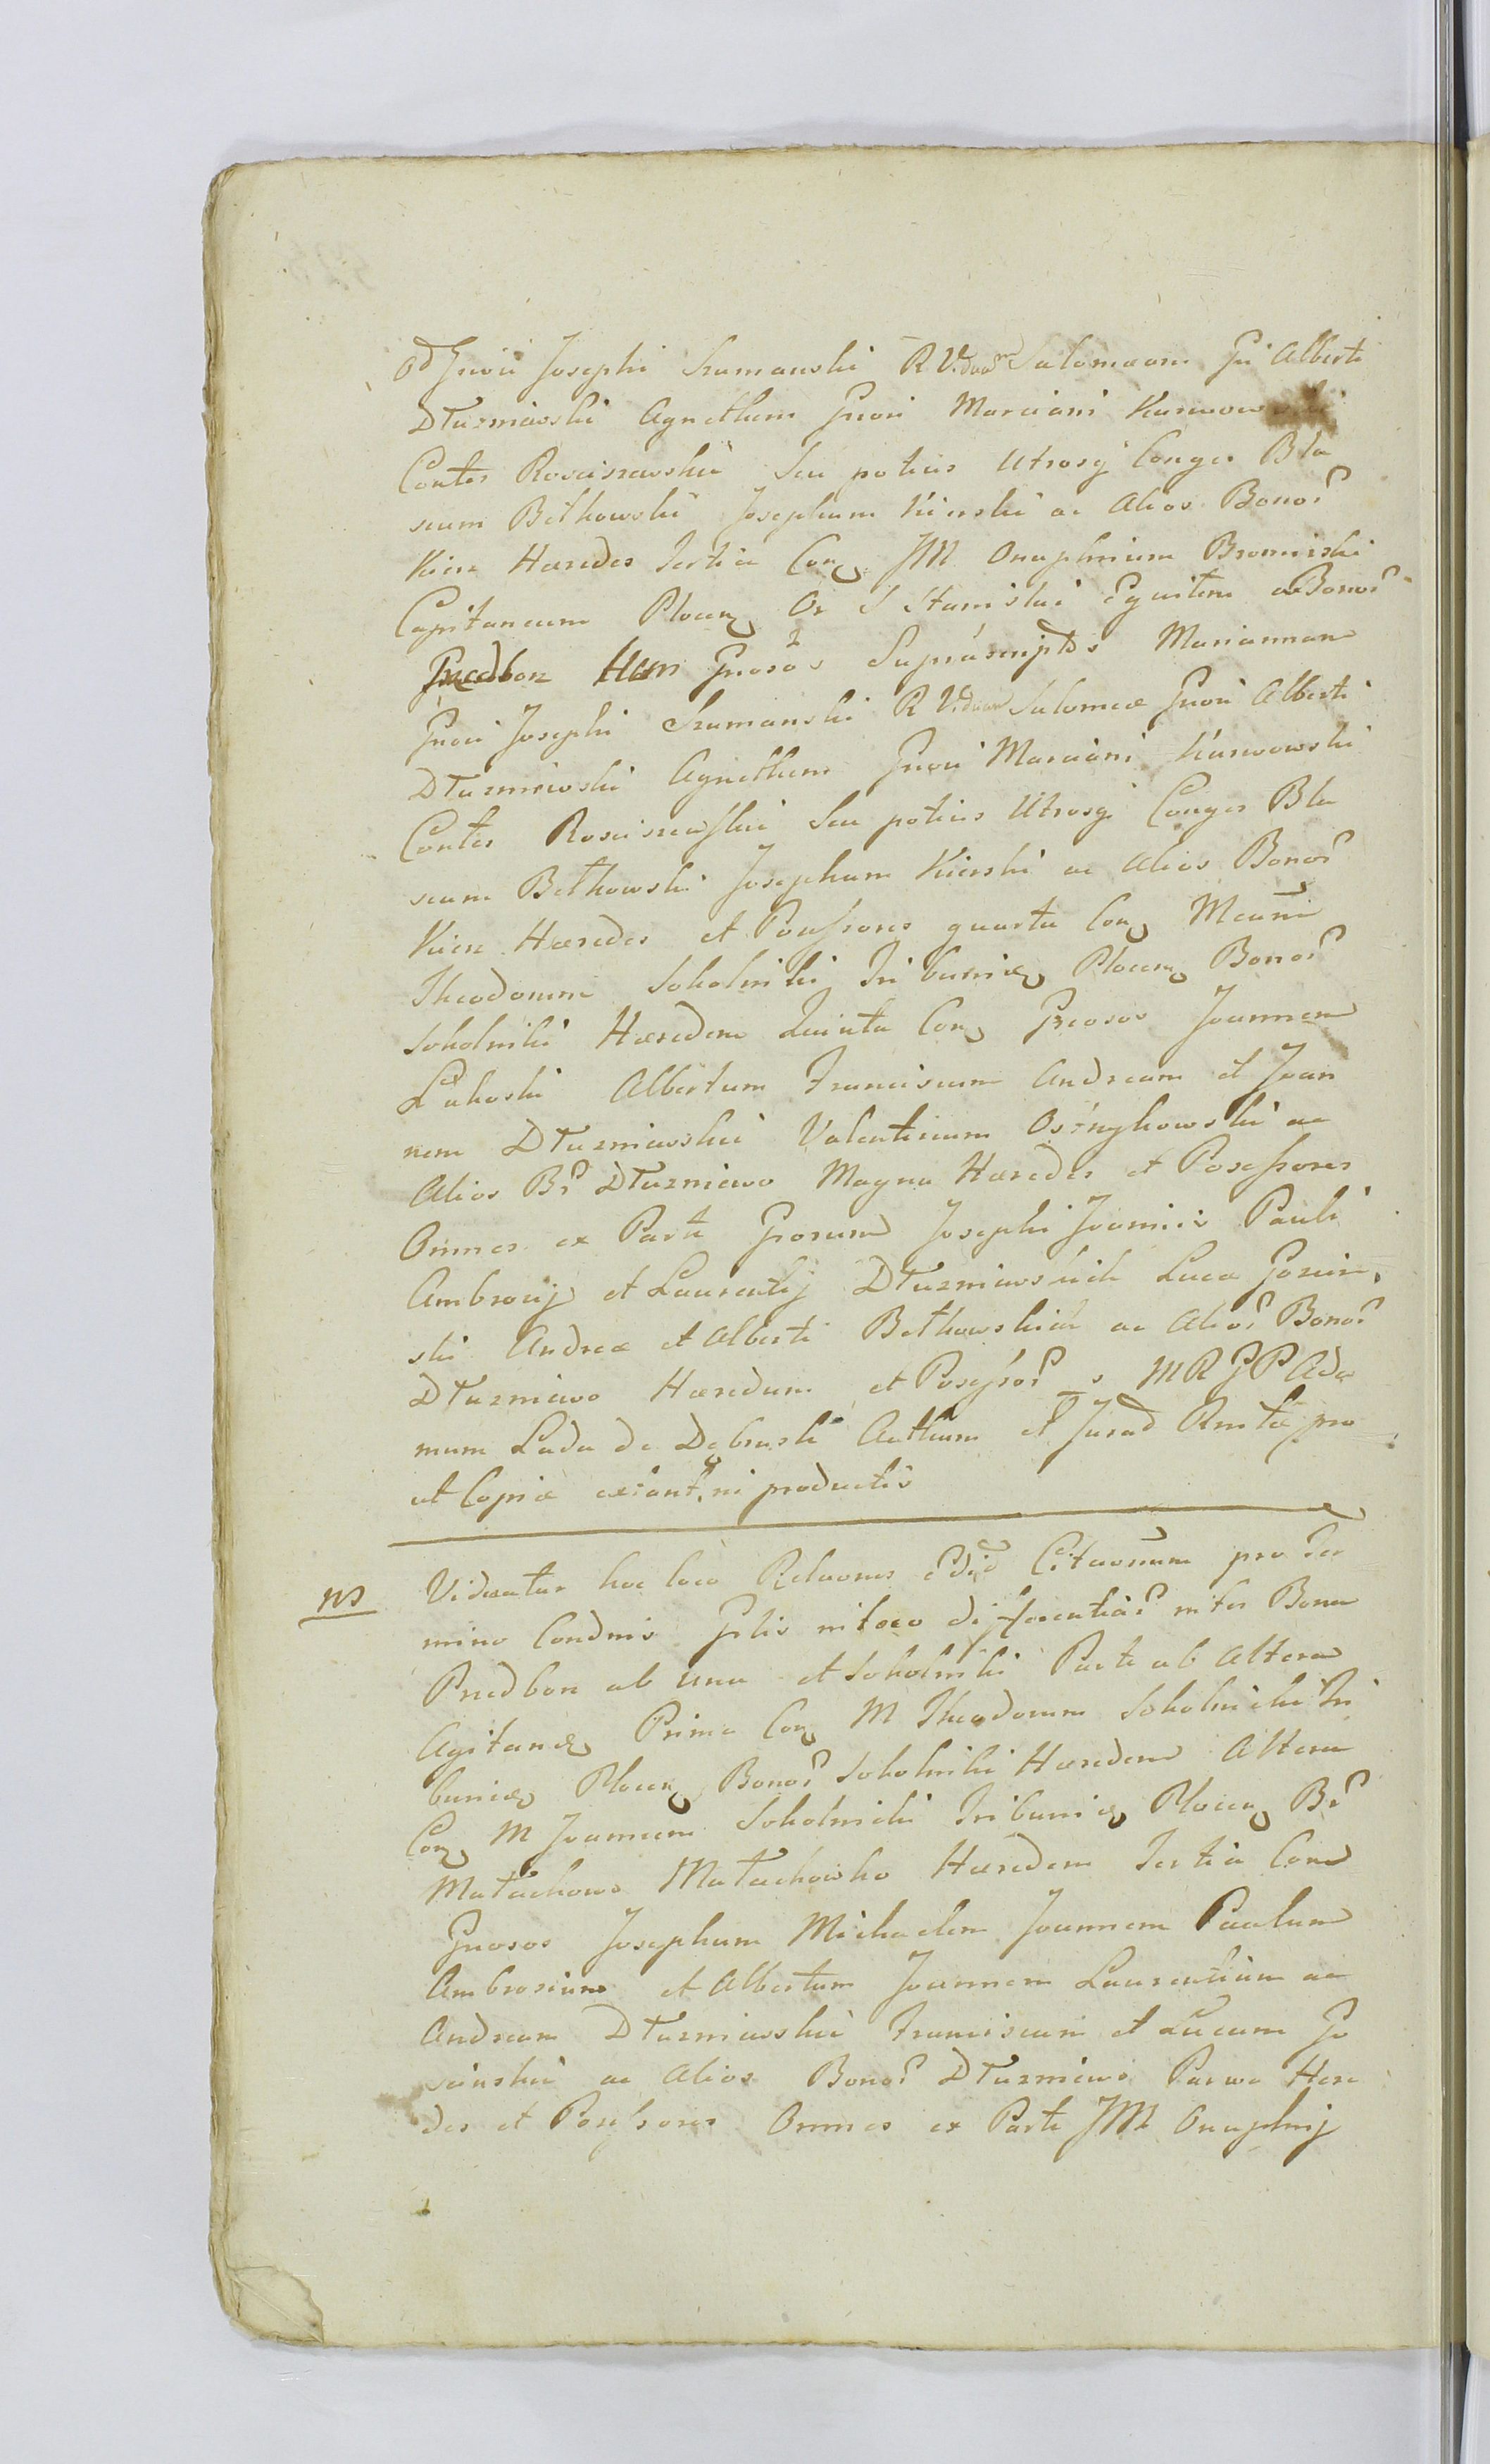 Gnõsi Josephi Szumanski R Viduam Salomeam Gñ Alberti
Dłuzniewski Agnetham Gnõsi Marciani Karwowski
Contes Rosciszewskii Seu potius Utrosq Conges Bla
sium Bethowski Josephum Kierski ac Alios Bonor
Kierz Hæredes Tertia Con JM Onuphrium Bromirski
Capitaneum Plocen Or S Stanislai Equitem ac Bonor
Przedborz Hæm Gnosos Suprascriptos Mariannam
Gnõsi Josephi Szumanski R Viduam Salomeæ Gnõsi Alberti
Dłuzniewski Agnetham Gnõsi Marciani Karwowski
Contes Rosciszewskii Seu potius Utrosq Conges Bla
sium Bethowski Josephum Kierski ac Alios Bonor
Kierz Hæredes et Possessores quarta Con
Theodorum Sokolnicki Tribunid Plocen Bonor
Sokolniki Hæredem Quinta Con Gnosos Joannem
Lukoski Albertum Franciscum Andream et Joan
nem Dłuzniewskii Valentinum ac
Alios Br Dłuzniewo Magna Hæredes et Possessores
Omnes ex Parte Gnorum Josephi Joannis Pauli
Ambrosij et Laurentij Dłuzniewskich Lucæ Gosciń
ski Andreæ et Alberti Bethowskich ac Alior Bonor
Dłuzniewo Hæredum et Possessor s M R G P Ada
mum Lada de Dębinski Authum et Jurad Rmitæ pro
ut Copiæ extant in productis
NB Videantur hoc loco Relaones Edid Citaonum pro Ter
mino Condnis Gtis in loco differentiar inter Bona
Przedborz ab una et Sokolniki Parte ab Altera
Agitand Prima Con M Theodorum Sokolnicki Tri
bunid Plocen Bonor Sokolniki Hæredem Altera
Con M Joannem Sokolnicki Tribunid Plocen Br
Małachowo Małachowko Hæredem Tertia Con
Gnosos Josephum Michaelem Joannem Paulum
Ambrosium et Albertum Joannem Laurentium ac
Andream Dłuzniewskii Franciscum et Lucam Go
scinskii ac Alios Bonor Dłuzniewo Parwa Hære
des et Possessores Omnes ex Parte JM Onuphrij